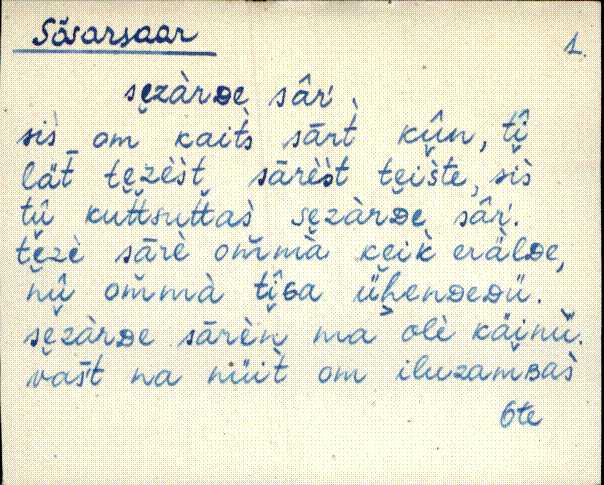 Sõsarsaar
1.
sęzàrᴅe sâŕ.
sìs om kaits̀ sārt̀ kûn, tî
lät tęzèst sārèst tęište, sìs
tû kuťťsuťťas̀ sęzàrᴅe sâŕ.
tęzè sārè om̆mà ķeik̀ erälᴅe,
nû om̆mà tîɢa üḩenᴅeᴅü.
sęzàrᴅe sārèn ma olè käinü̆.
vaśt na nüit̀ om iluzamʙas̀
Ote